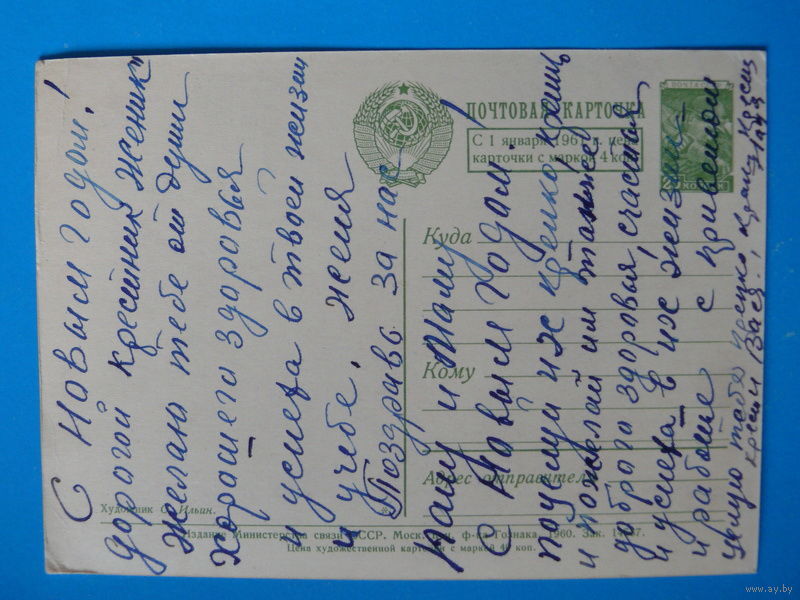 С Новым годом!
дорогой крестник женик
желаю тебе от души
хорошего здоровья
и успеха в твоей жизни
и учебе. женя
Поздравь за нас
папу и маму
с Новым годом.
поцелуй их крепко крепко
и пожелай им также
доброго здоровья, счастья
и успеха в их жизни
и работе с приветом
целую тебя крепко
крестный Вася.
ПОЧТОВАЯ КАРТОЧКА
С 1 января 1961 г. цена
карточки с маркой 4 коп.
Куда
Кому
Адрес отправителя
Художник С. Ильин.
Издание Министерства связи СССР. Моск. ф-ка Гознака. 1960. Зак.
Цена художественной карточки с маркой 40 коп.
www.ay.by